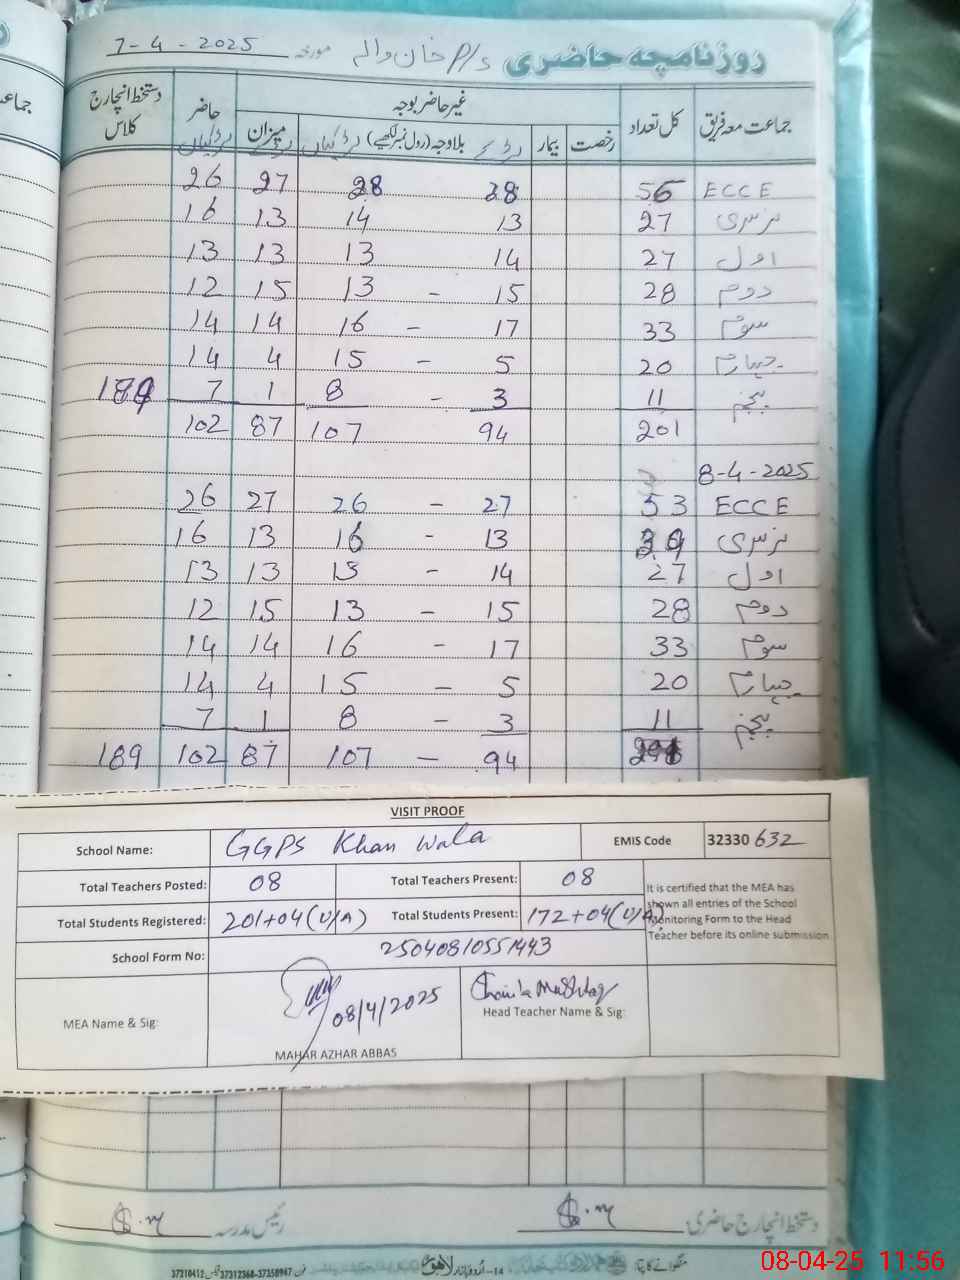 روزنامچہ حاضری P/S خان والہ مورخہ 7-4-2025
جماعت معہ فریق کل تعداد غیر حاضر بوجہ حاضر دستخط انچارج کلاس
رخصت بیمار لڑکے بلاوجہ (رول نمبر لکھیے) لڑکیاں میزان لڑکے لڑکیاں
ECCE 56 28 28 27 26
نرسری 27 13 14 13 16
اول 27 14 13 13 13
دوم 28 15 - 13 15 12
سوم 33 17 - 16 14 14
چہارم 20 5 - 15 4 14
پنجم 11 3 - 8 1 7 189
201 94 107 87 102
8-4-2025
ECCE 53 27 - 26 27 26
نرسری 13 - 16 13 16
اول 27 14 - 13 13 13
دوم 28 15 - 13 15 12
سوم 33 17 - 16 14 14
چہارم 20 5 - 15 4 14
پنجم 11 3 - 8 1 7
94 - 107 87 102 189
VISIT PROOF
School Name: GGPS Khan Wala EMIS Code 32330 632
Total Teachers Posted: 08 Total Teachers Present: 08
Total Students Registered: 201+04(U/A) Total Students Present: 172+04(U/A)
It is certified that the MEA has
shown all entries of the School
Monitoring Form to the Head
Teacher before its online submission
School Form No: 25040810551443
MEA Name & Sig: 08/4/2025
MAHAR AZHAR ABBAS
Head Teacher Name & Sig:
دستخط انچارج حاضری رئیس مدرسہ
منگوانے کا پتا 14-اردو بازار لاہور فون 37310412
08-04-25 11:56